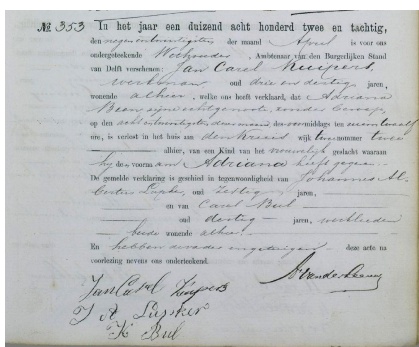 № 353 In het jaar een duizend acht honderd twee en tachtig,
den negenentwintigsten der maand April is voor ons
ondergeteekende Wethouder, Ambtenaar van den Burgerlijken Stand
van Delft verschenen: Jan Carel Kuipers,
werkman oud drie en dertig jaren,
wonende alhier, welke ons heeft verklaard, dat Adriana
Been zijne echtgenoote, zonder beroep,
op den achtentwintigsten dezer maand des voormiddags ten
ure, is verlost in het huis aan wijk nummer twee
alhier, van een Kind van het vrouwelijk geslacht waaraan
hij de voornaam Adriana heeft gegeven.
De gemelde verklaring is geschied in tegenwoordigheid van Johannes Al-
oud Zestig jaren,
en van Carel Bul
oud dertig jaren,
beide wonende alhier.
En hebben deze acte na
voorlezing nevens ons onderteekend.
Jan Carel Kuipers
J A Lupker
K Bul